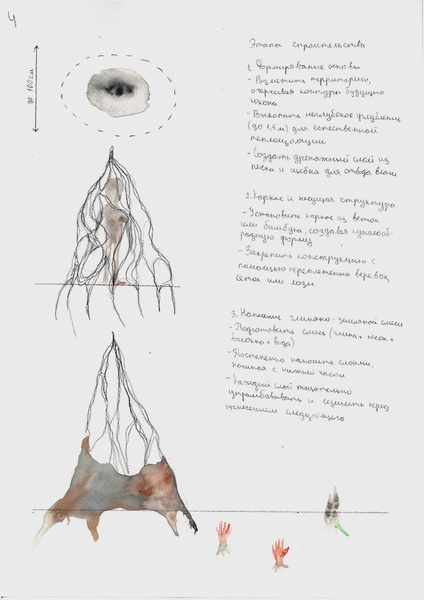 4
до 100 см
Этапы строительства
1. Формирование основы
- Разметить территорию,
очерчивая контуры будущего
кокона
- Выкопать неглубокое углубление
(до 1.5м) для естественной
теплоизоляции
- Создать дренажный слой из
песка и щебня для отвода влаги
2. Каркас и несущая структура
- Установить каркас из веток
или бамбука, создавая куполооб-
разную форму
- Закрепить конструкцию с
помощью переплетения веревок,
сеток или лозы
3. Нанесение глиняно-землянной смеси
- Подготовить смесь (глина + песок +
волокно + вода)
- Постепенно наносить слоями,
начиная с нижней части
- Каждый слой тщательно
утрамбовывать и сушить перед
нанесением следующего.